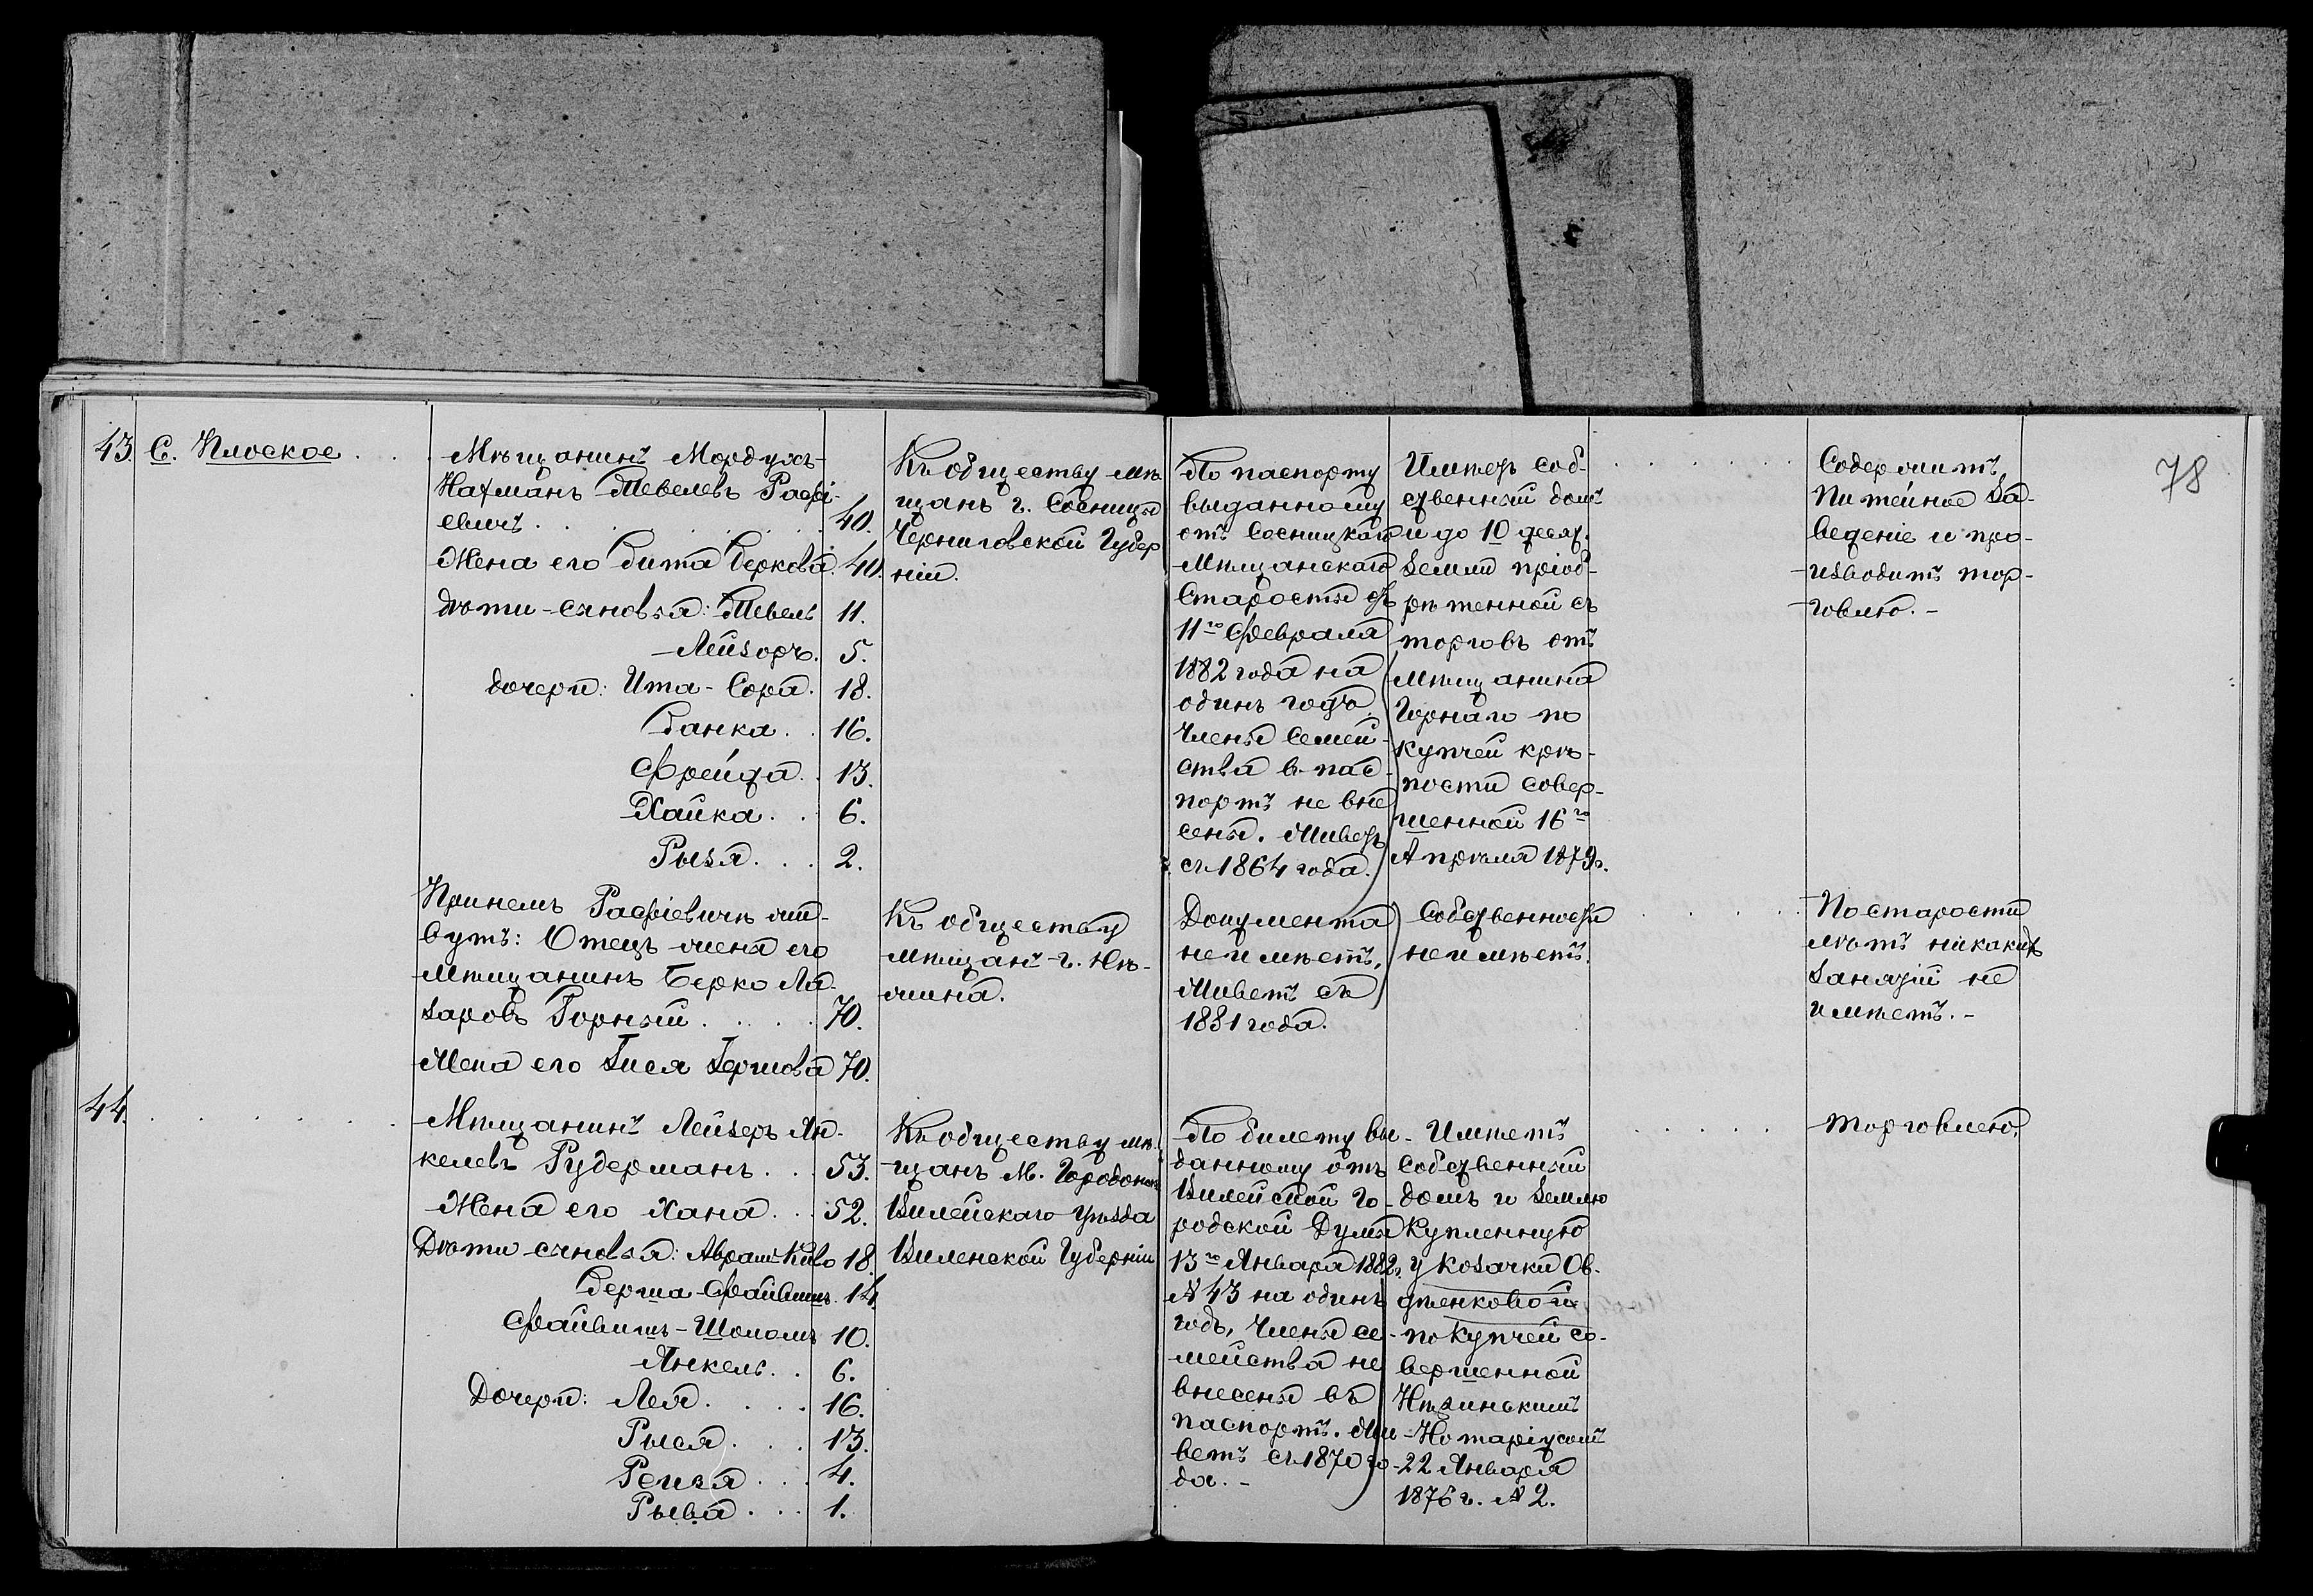 78
43. С. Плоское . . .
Мѣщанинъ Мордухъ-
Нахманъ Тевелевъ Рафі-
евичъ . . . 40.
Жена его Бита Беркова. 40.
Дѣти-сыновья: Тевель 11.
Лейзоръ. 5.
дочери: Ита-Сора. 18.
Банка . . 16.
Фрейда. . 13.
Хайка . . 6.
Рызя . . . 2.
Къ обществу мѣ
щанъ г. Сосницы
Черниговской Губер
ніи.
По паспорту
выданному
отъ Сосницкаго
Мѣщанскаго
Старосты отъ
11го Февраля
1882 года на
одинъ годъ.
Члены Семей-
ства в пас-
портъ не вне
сены. Живетъ
съ 1864 года.
Имѣетъ соб-
ственный домъ
и до 10 десят.
Земли пріоб-
рѣтенной съ
торговъ отъ
Мѣщанина
Горнаго по
купчей крѣ-
пости совер-
шенной 16го
Апрѣля 1879г.
Содержитъ
Питейное За-
веденіе и про-
-изводитъ тор-
-говлю. -
При немъ Рафіевичѣ жи-
вутъ: Отецъ жены его
Мѣщанинъ Берко Ла-
заровъ Горный . . . . 70.
Жена его Зися Гершова 70.
Къ обществу
мѣщанъ г. Нѣ-
жина.
Документа
не имѣетъ,
Живетъ съ
1881 года.
Собственности
не имѣетъ.
По старости
лѣтъ никакихъ
Занятій не
имѣетъ. -
44. . . . . .
Мѣщанинъ Лейзеръ Ян-
келевъ Рудерманъ . . . 53.
Жена его Хана . . . 52.
Дѣти сыновья: Абрамъ-Киво 18.
Берша-Файвишъ. 14.
Файвишъ-Шоломъ 10.
Янкель . . 6.
Дочери: Лея . . . . 16.
Рыся . . . 13.
Рейзя . . . 4.
Рыва . . . 1.
Къ обществу мѣ-
щанъ М.
Вилейскаго уѣзда
Виленской Губерніи
По билету вы-
данному отъ
Вилейской Го-
родской Думы
13го Января 1882г.
№ 43 на одинъ
годъ, Члены се-
мейства не
внесены въ
паспортъ. Жи-
ветъ съ 1870 го-
да. -
Имѣетъ
Собственный
домъ и Землю
Купленную
у козачки Ов-
дѣенковой
по купчей со-
вершенной
Нѣжинскимъ
Нотаріусомъ
22 Января
1876 г. № 2.
Торговлею.